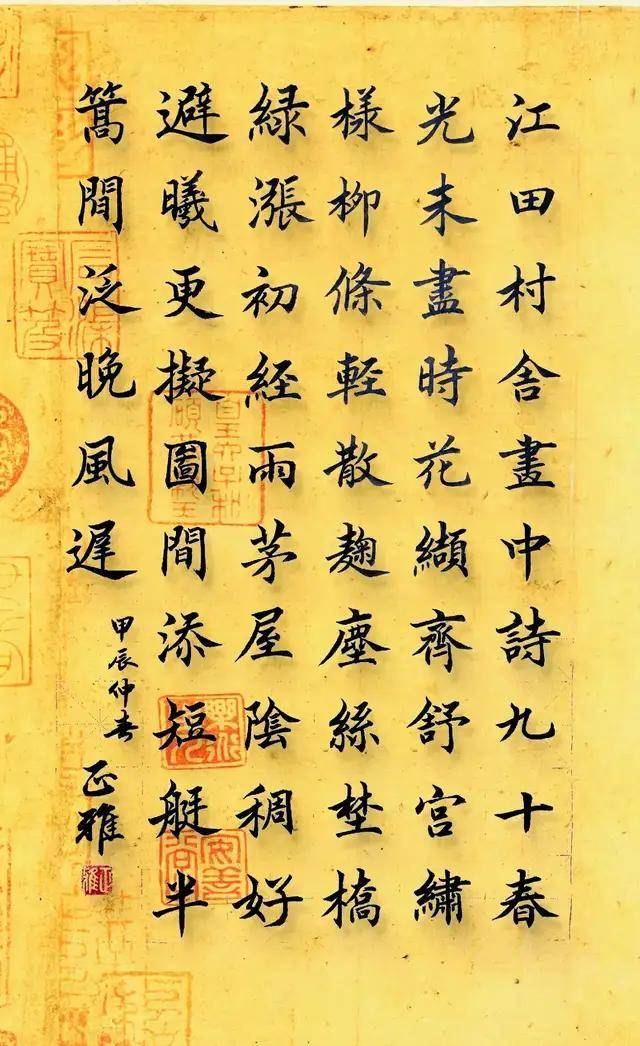 江田村舍畫中詩九十春
光未盡時花纈齊舒宮繡
樣柳條軽散麹塵絲埜橋
緑漲初経雨茅屋陰稠好
避曦更擬圖間添短艇半
篙間泛晚風遲
甲辰仲春
正雅